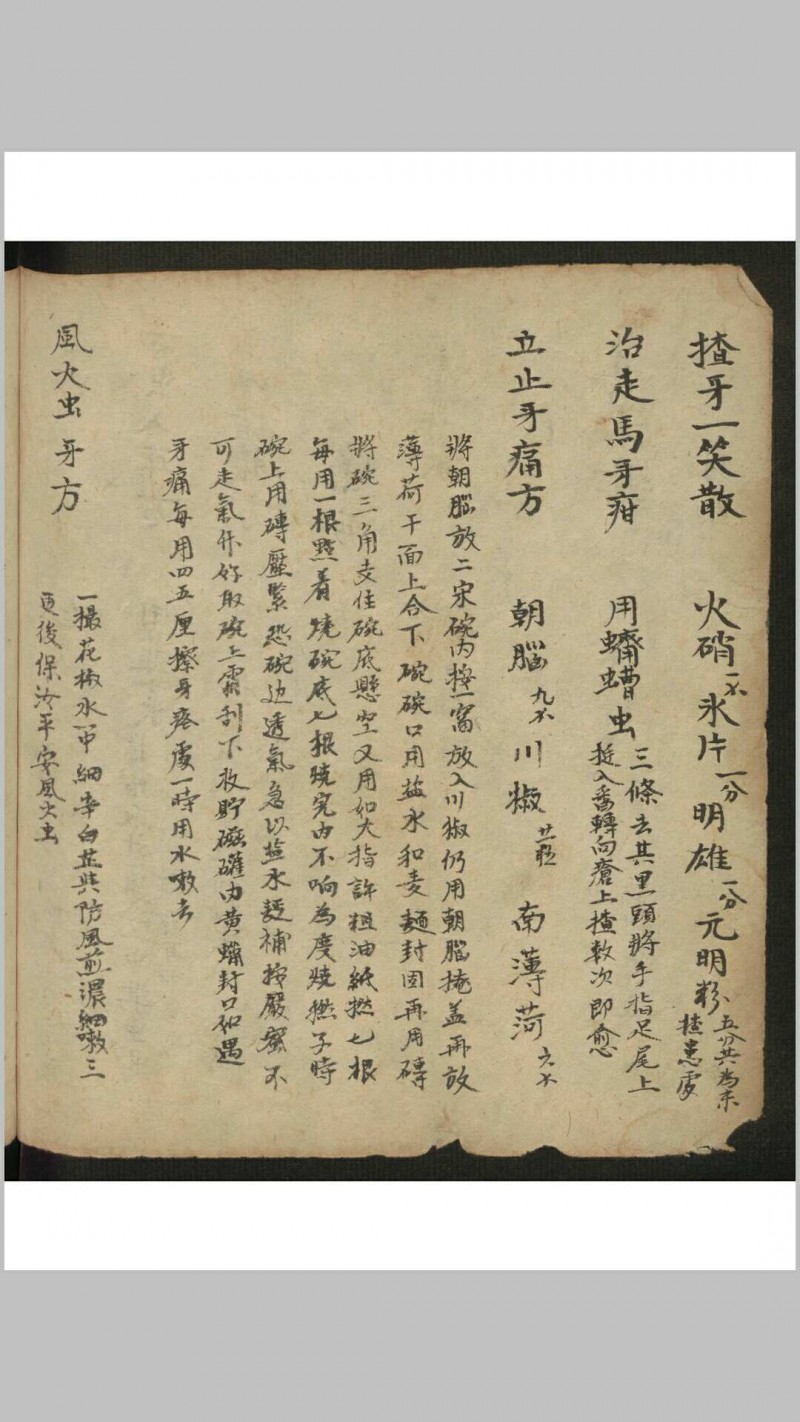 揸牙一笑散 火硝一个 氷片一分 明雄一分 元明粉五分共為末
揸患處
治走馬牙疳 用蠐螬虫三條去其黒頭將手指足尾上
挺入番轉向瘡上揸数次即愈
立止牙痛方 朝腦九个 川椒廿粒 南薄荷六个
將朝腦放二宋碗内按一窩放入川椒仍用朝腦掩盖再放
薄荷干面上合下碗碗口用盐水和麦麵封固再用磚
將碗三角支住碗底懸空又用如大指許粗油紙撚七根
每用一根點着燒碗底七根燒完内不响為度燒撚子時
碗上用磚壓緊恐碗边透氣急以盐水麵補按嚴密不
可走氣作好取碗上霜刮下收貯磁礶内黄蠟封口如遇
牙痛每用四五厘擦牙疼處一時用水嗽去
風火虫牙方
一撮花椒水一中細辛白芷共防風煎濃細嗽三
更後保汝平安風火虫